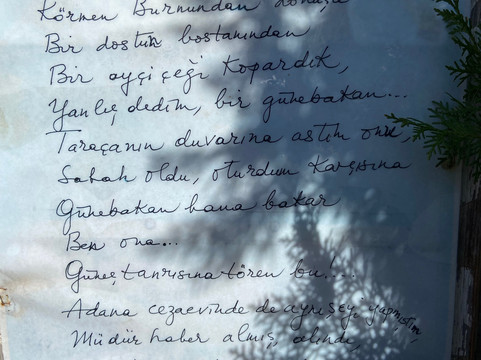 Körmen Burnundan dönüşte
Bir dostun bostanından
Bir ayçiçeği kopardık,
Yanlış dedim, bir günebakan...
Taraçanın duvarına astım onu,
Sabah oldu, oturdum karşısına
Günebakan bana bakar
Ben ona...
Güneş tanrısına tören bu!...
Adana cezaevinde de aynı şeyi yapmıştım,
Müdür haber almış, alında,